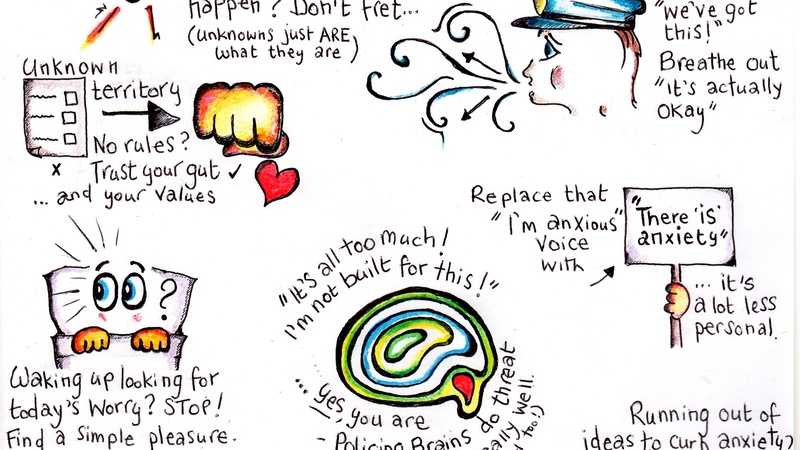 happen? Don't fret...
(unknowns just ARE
what they are)
"we've got
this!"
Breathe out
"it's actually
okay"
Unknown
territory
No rules?
x Trust your gut ✓
... and your values
Replace that
"I'm anxious"
voice
with
"There 'is'
anxiety"
... it's
a lot less
personal.
"It's all too much!
I'm not built for this!"
... yes, you are
- Policing Brains
do threat
really well.
too!)
?
Waking up looking for
today's worry? STOP!
Find a simple pleasure.
Running out of
ideas to curb anxiety?